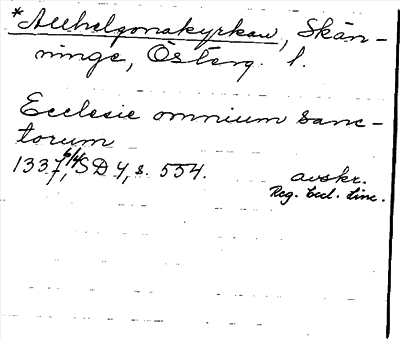 *Allhelgonakyrkan, Skän-
ninge, Österg. l.
Ecclesie omnium sanc-
torum
1337 6/4, SD 4, s. 554. avskr.
Reg. Eccl. Linc.